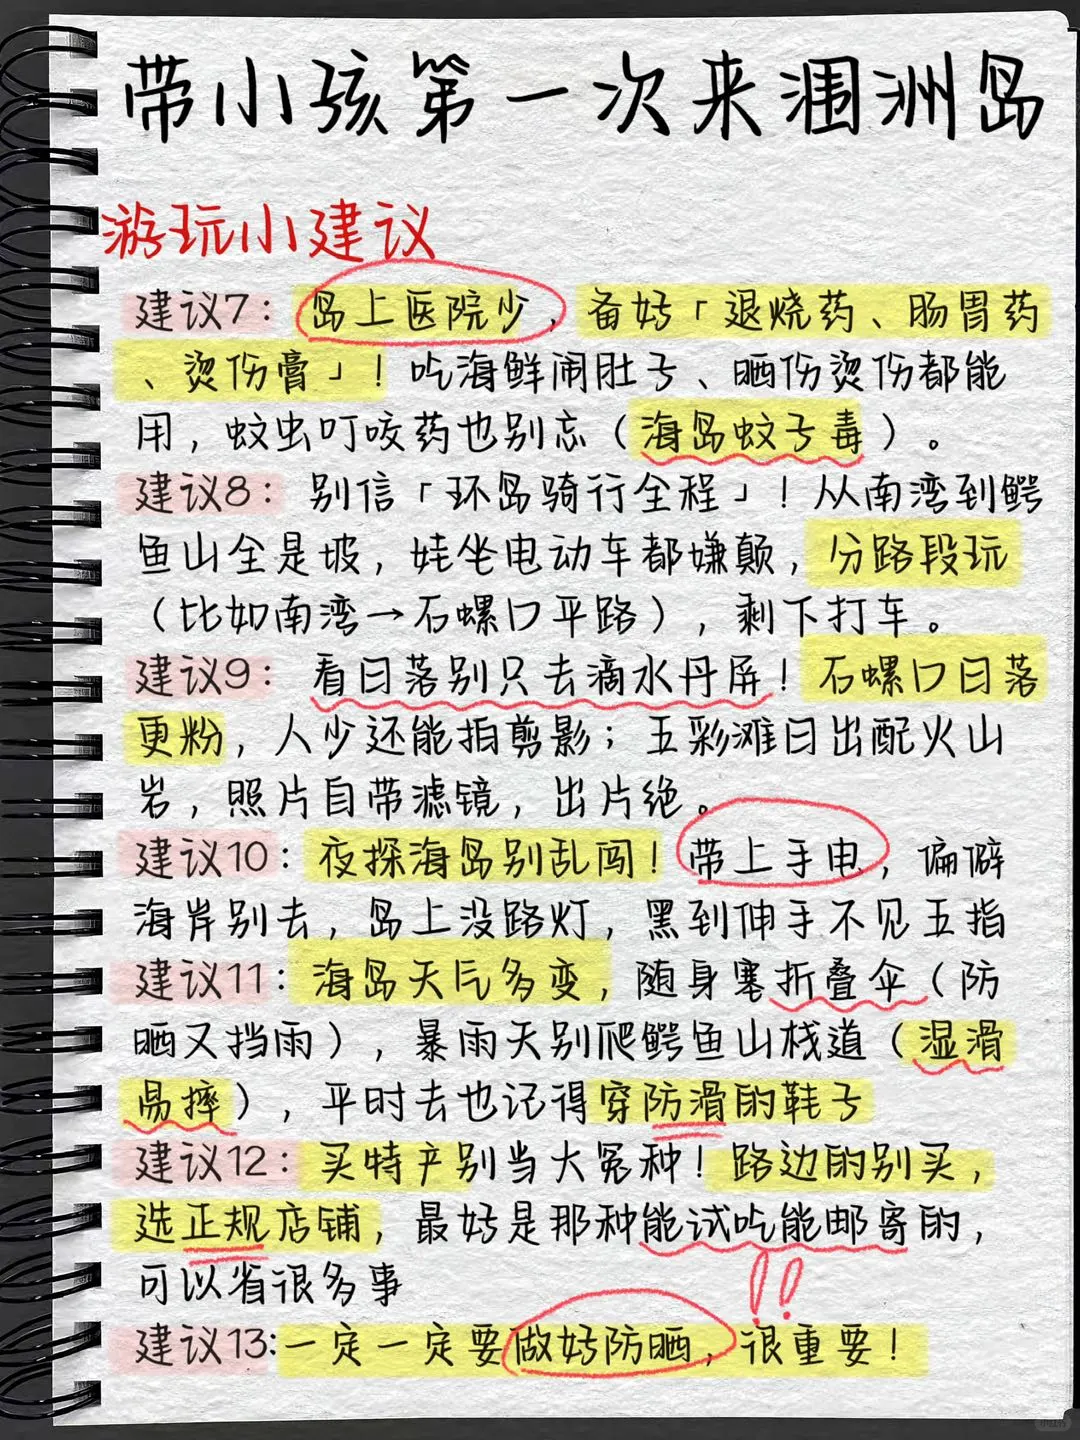 带小孩第一次来涠洲岛
游玩小建议
建议7：岛上医院少，备好「退烧药、肠胃药
、烫伤膏」！吃海鲜闹肚子、晒伤烫伤都能
用，蚊虫叮咬药也别忘（海岛蚊子毒）。
建议8：别信「环岛骑行全程」！从南湾到鳄
鱼山全是坡，娃坐电动车都嫌颠，分路段玩
（比如南湾→石螺口平路），剩下打车。
建议9：看日落别只去滴水丹屏！石螺口日落
更粉，人少还能拍剪影；五彩滩日出配火山
岩，照片自带滤镜，出片绝。
建议10：夜探海岛别乱闯！带上手电，偏僻
海岸别去，岛上没路灯，黑到伸手不见五指
建议11：海岛天气多变，随身塞折叠伞（防
晒又挡雨），暴雨天别爬鳄鱼山栈道（湿滑
易摔），平时去也记得穿防滑的鞋子
建议12：买特产别当大冤种！路边的别买，
选正规店铺，最好是那种能试吃能邮寄的，
可以省很多事
建议13:一定一定要做好防晒，很重要！